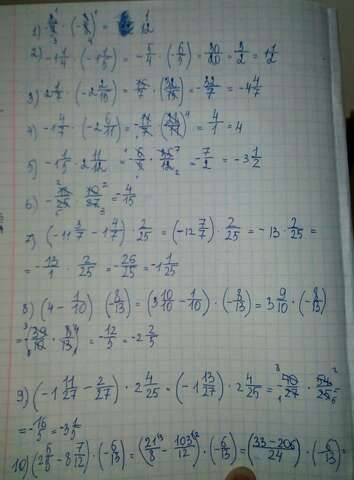 2) -1 1/4 · (-1 1/5) = -5/4 · (-6/5) = 30/20 = 3/2 = 1 1/2
3) 2 1/7 · (-2 2/15) = 15/7 · (32/15) = -32/7 = -4 4/7
4) -1 4/7 · (-2 6/11) = -11/7 · (28/11) = 4/1 = 4
5) -1 1/5 · 2 11/12 = -6/5 · 35/12 = -7/2 = -3 1/2
6) -18/25 · 10/27 = -4/15
7) (-11 3/7 - 1 4/7) · 2/25 = (-12 7/7) · 2/25 = -13 · 2/25 =
= -13/1 · 2/25 = -26/25 = -1 1/25
8) (4 - 1/10) · (-8/13) = (3 10/10 - 1/10) · (-8/13) = 3 9/10 · (-8/13)
= -12/5 = -2 2/5
9) (-1 11/27 - 2/27) · 2 4/25 = (-1 13/27) · 2 4/25 = 40/27 · 54/25 =
= -16/5 = -3 1/5
10) (2 5/8 - 8 7/12) · (-6/13) = (21/8 - 103/12) · (-6/13) = (33-206/24) · (-6/13) =